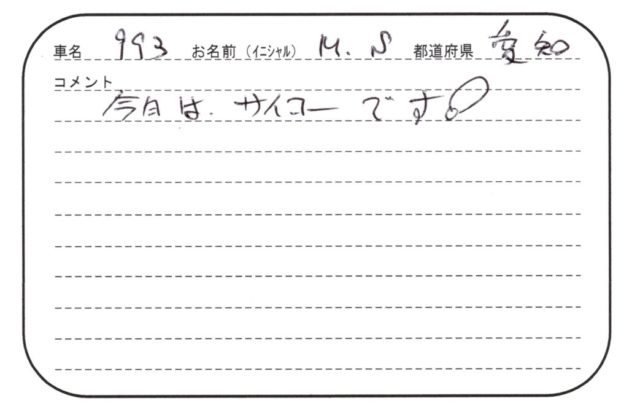 車名 993 お名前（ｲﾆｼｬﾙ） M. S 都道府県 愛知
コメント
今日は、サイコーです!